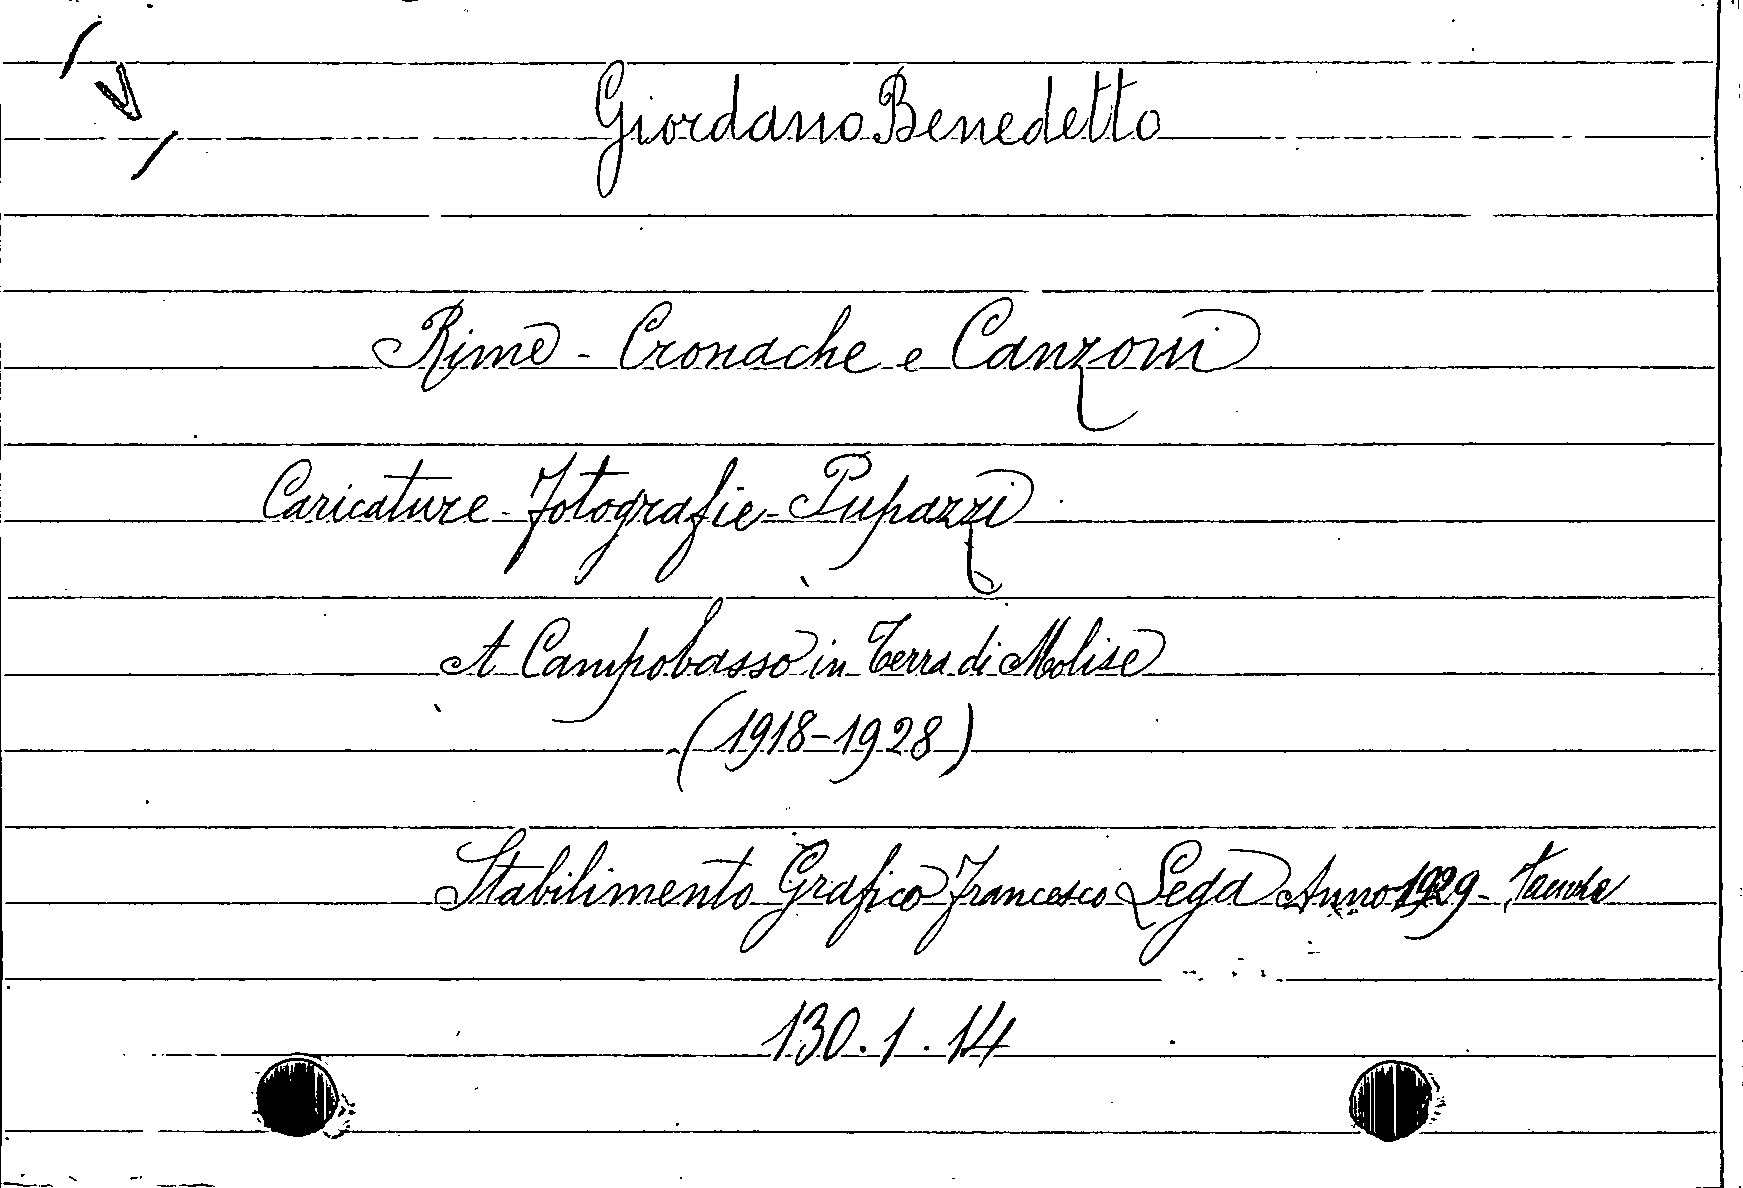 Giordano Benedetto
Rime - Cronache e Canzoni
Caricature - Fotografie - Pupazzi
A Campobasso in Terra di Molise
(1918-1928)
Stabilimento Grafico Francesco Lega Anno 1929 -
130.1.14